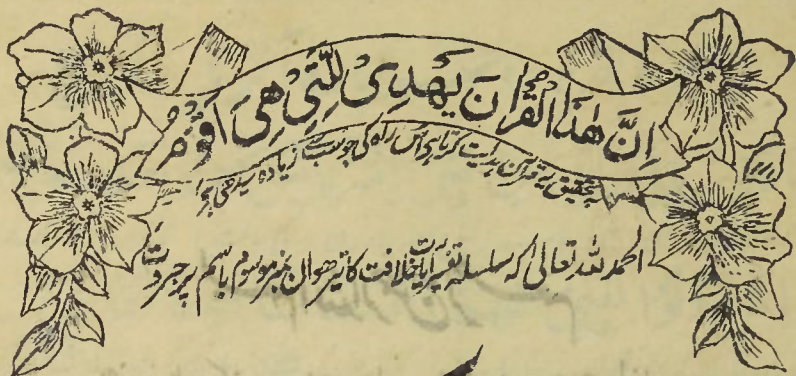 اِنَّ هٰذَا الْقُرْاٰنَ يَهْدِىْ لِلَّتِىْ هِىَ اَقْوَمُ
بہ تحقیق یہ قرآن ہدایت کرتا ہی اس راہ کی جو سب سے زیادہ سیدھی ہو
الحمد للہ تعالیٰ کہ سلسلہ تفسیر آیات خلافت کا تیرھواں نمبر موسوم باسم پر جبروت